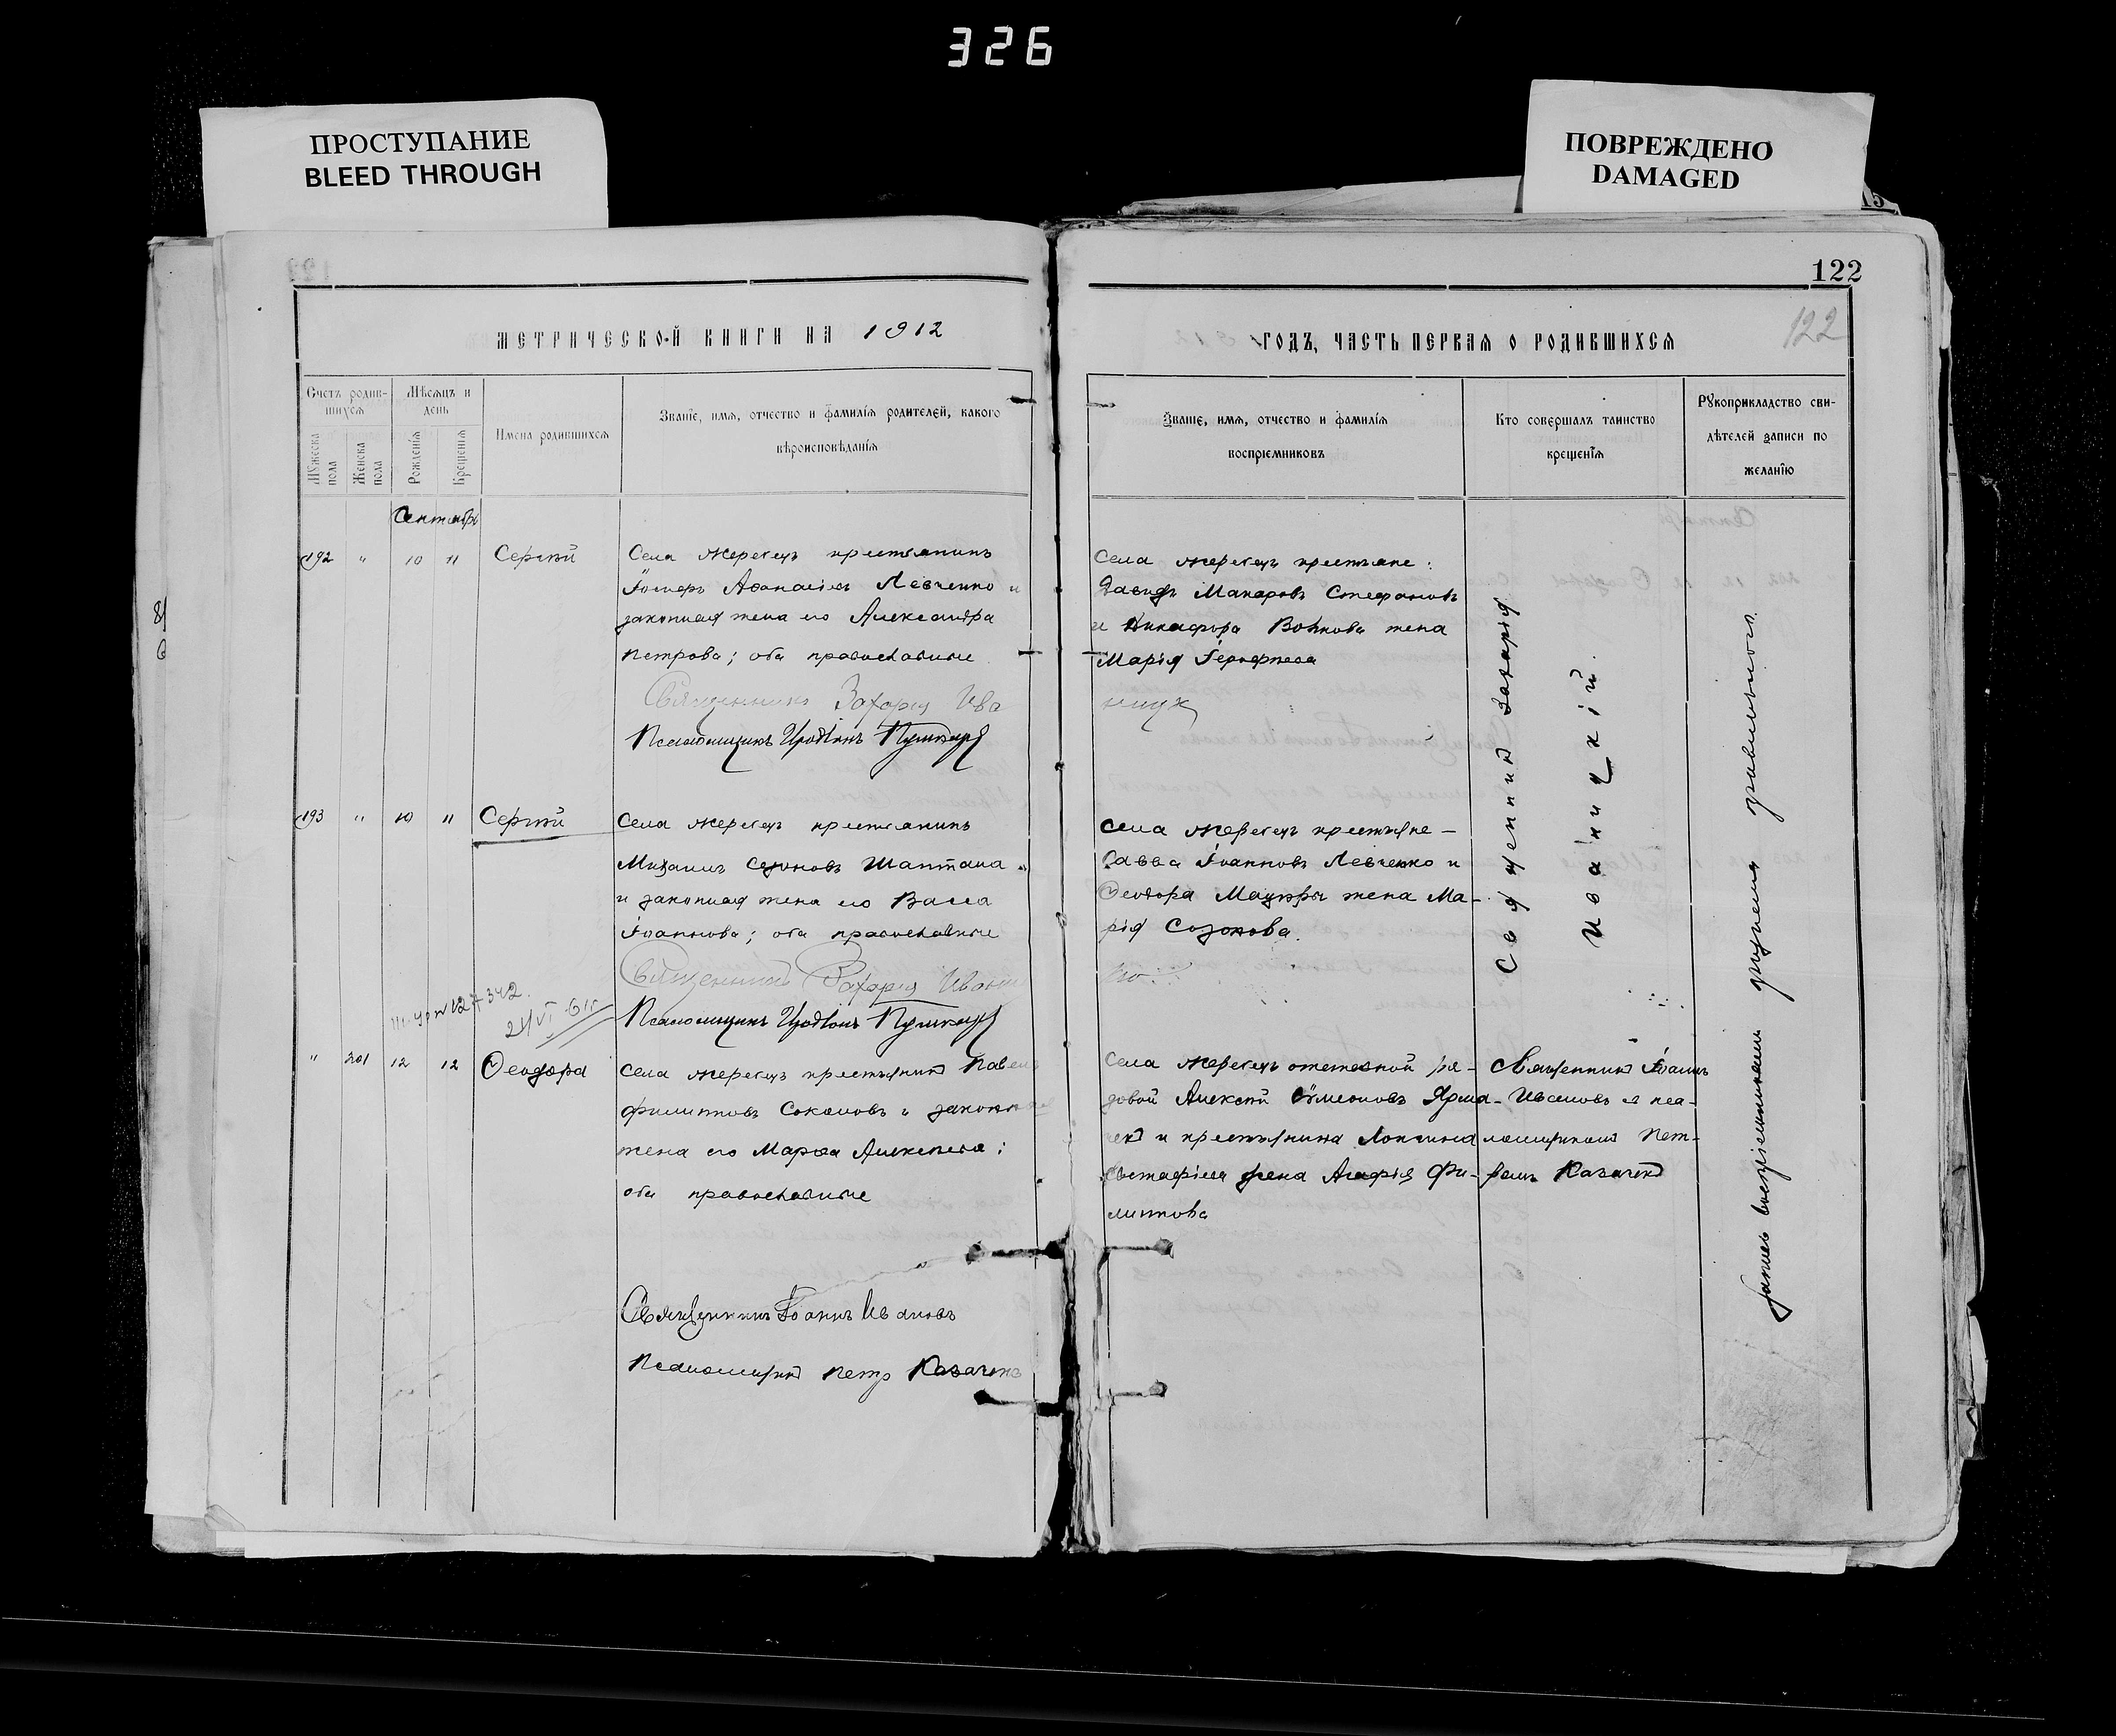 326
ПРОСТУПАНИЕ
BLEED THROUGH
ПОВРЕЖДЕНО
DAMAGED
15
122
122
МЕТРИЧЕСКОЙ КНИГИ НА 1912
ГОДЪ, ЧАСТЬ ПЕРВАЯ О РОДИВШИХСЯ
Счетъ родив-
шихся
Мѣсяцъ и
день
Мужеска
пола
Женска
пола
Рожденія
Крещенія
Имена родившихся
Званіе, имя, отчество и фамилія родителей, какого
вѣроисповѣданія
Званіе, имя, отчество и фамилія
воспріемниковъ
Кто совершалъ таинство
крещенія
Рукоприкладство сви-
дѣтелей записи по
желанію
Сентябрь
192 " 10 11 Сергій
Села Жеребецъ крестьянинъ
Аѳанасіевъ Левченко и
законная жена его Александра
Петрова; оба православные
Священникъ Захарія Ива
Псаломщикъ Иродіонъ Пушкарь
Села Жеребецъ крестьяне:
Давидъ Макаровъ Стефановъ
и Никифора Волкова жена
Марія
ницк
193 " 10 11 Сергій
Села Жеребецъ крестьянинъ
Михаилъ Созоновъ Шаптала
и законная жена его Васса
Іоаннова; оба православные
Священникъ Захарія Иваниц
Псаломщикъ Иродіонъ Пушкарь
Села Жеребецъ крестьяне —
Савва Іоанновъ Левченко и
Ѳеодора Мацюры жена Ма-
рія Созонова.
Священникъ Захарія
Иваницкій.
342
" 201 12 12 Ѳеодора
Села Жеребецъ крестьянинъ Павелъ
Филипповъ Соколовъ и законная
жена его Марѳа Алексіева;
оба православные
Священникъ Іоаннъ Ивановъ
Псаломщикъ Петръ Казачекъ
Села Жеребецъ отставной ря-
довой Алексій Сѵмеоновъ Ярма-
екъ и крестьянина Лонгина
Евстафіева жена Агафія Фи-
липпова
Священникъ Іоаннъ
Ивановъ и пса-
ломщикомъ Пет-
ромъ Казачекъ